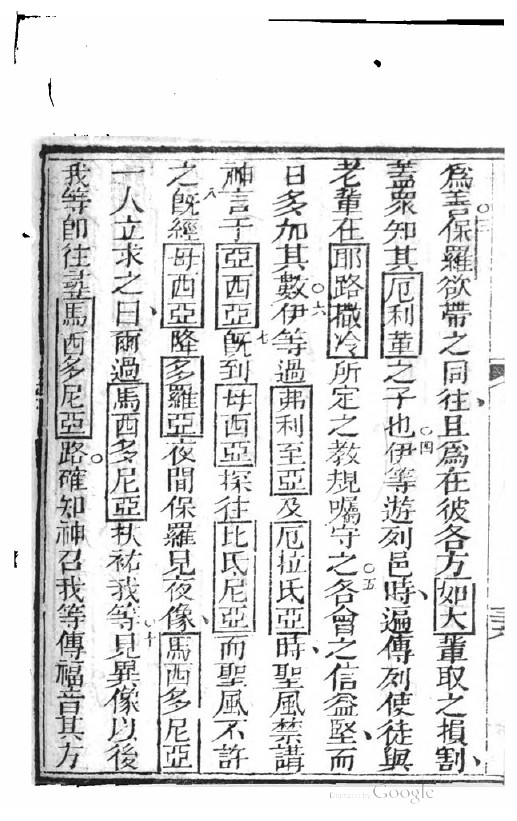 為善保羅欲帶之同往且為在彼各方如大輩取之損割
蓋眾知其厄利輦之子也伊等遊列邑時遍傳列使徒與
老輩在耶路撒冷所定之教規囑守之各會之信益堅而
日多加其數伊等過弗利至亞及厄拉氏亞時聖風禁講
神言于亞西亞既到毋西亞探往比氏尼亞而聖風不許
之既經毋西亞降多羅亞夜間保羅見夜像馬西多尼亞
一人立求之曰爾過馬西多尼亞扶祐我等見異像以後
我等即往馬西多尼亞路確知神召我等傳福音其方
四
五
六
七
八
十
Google